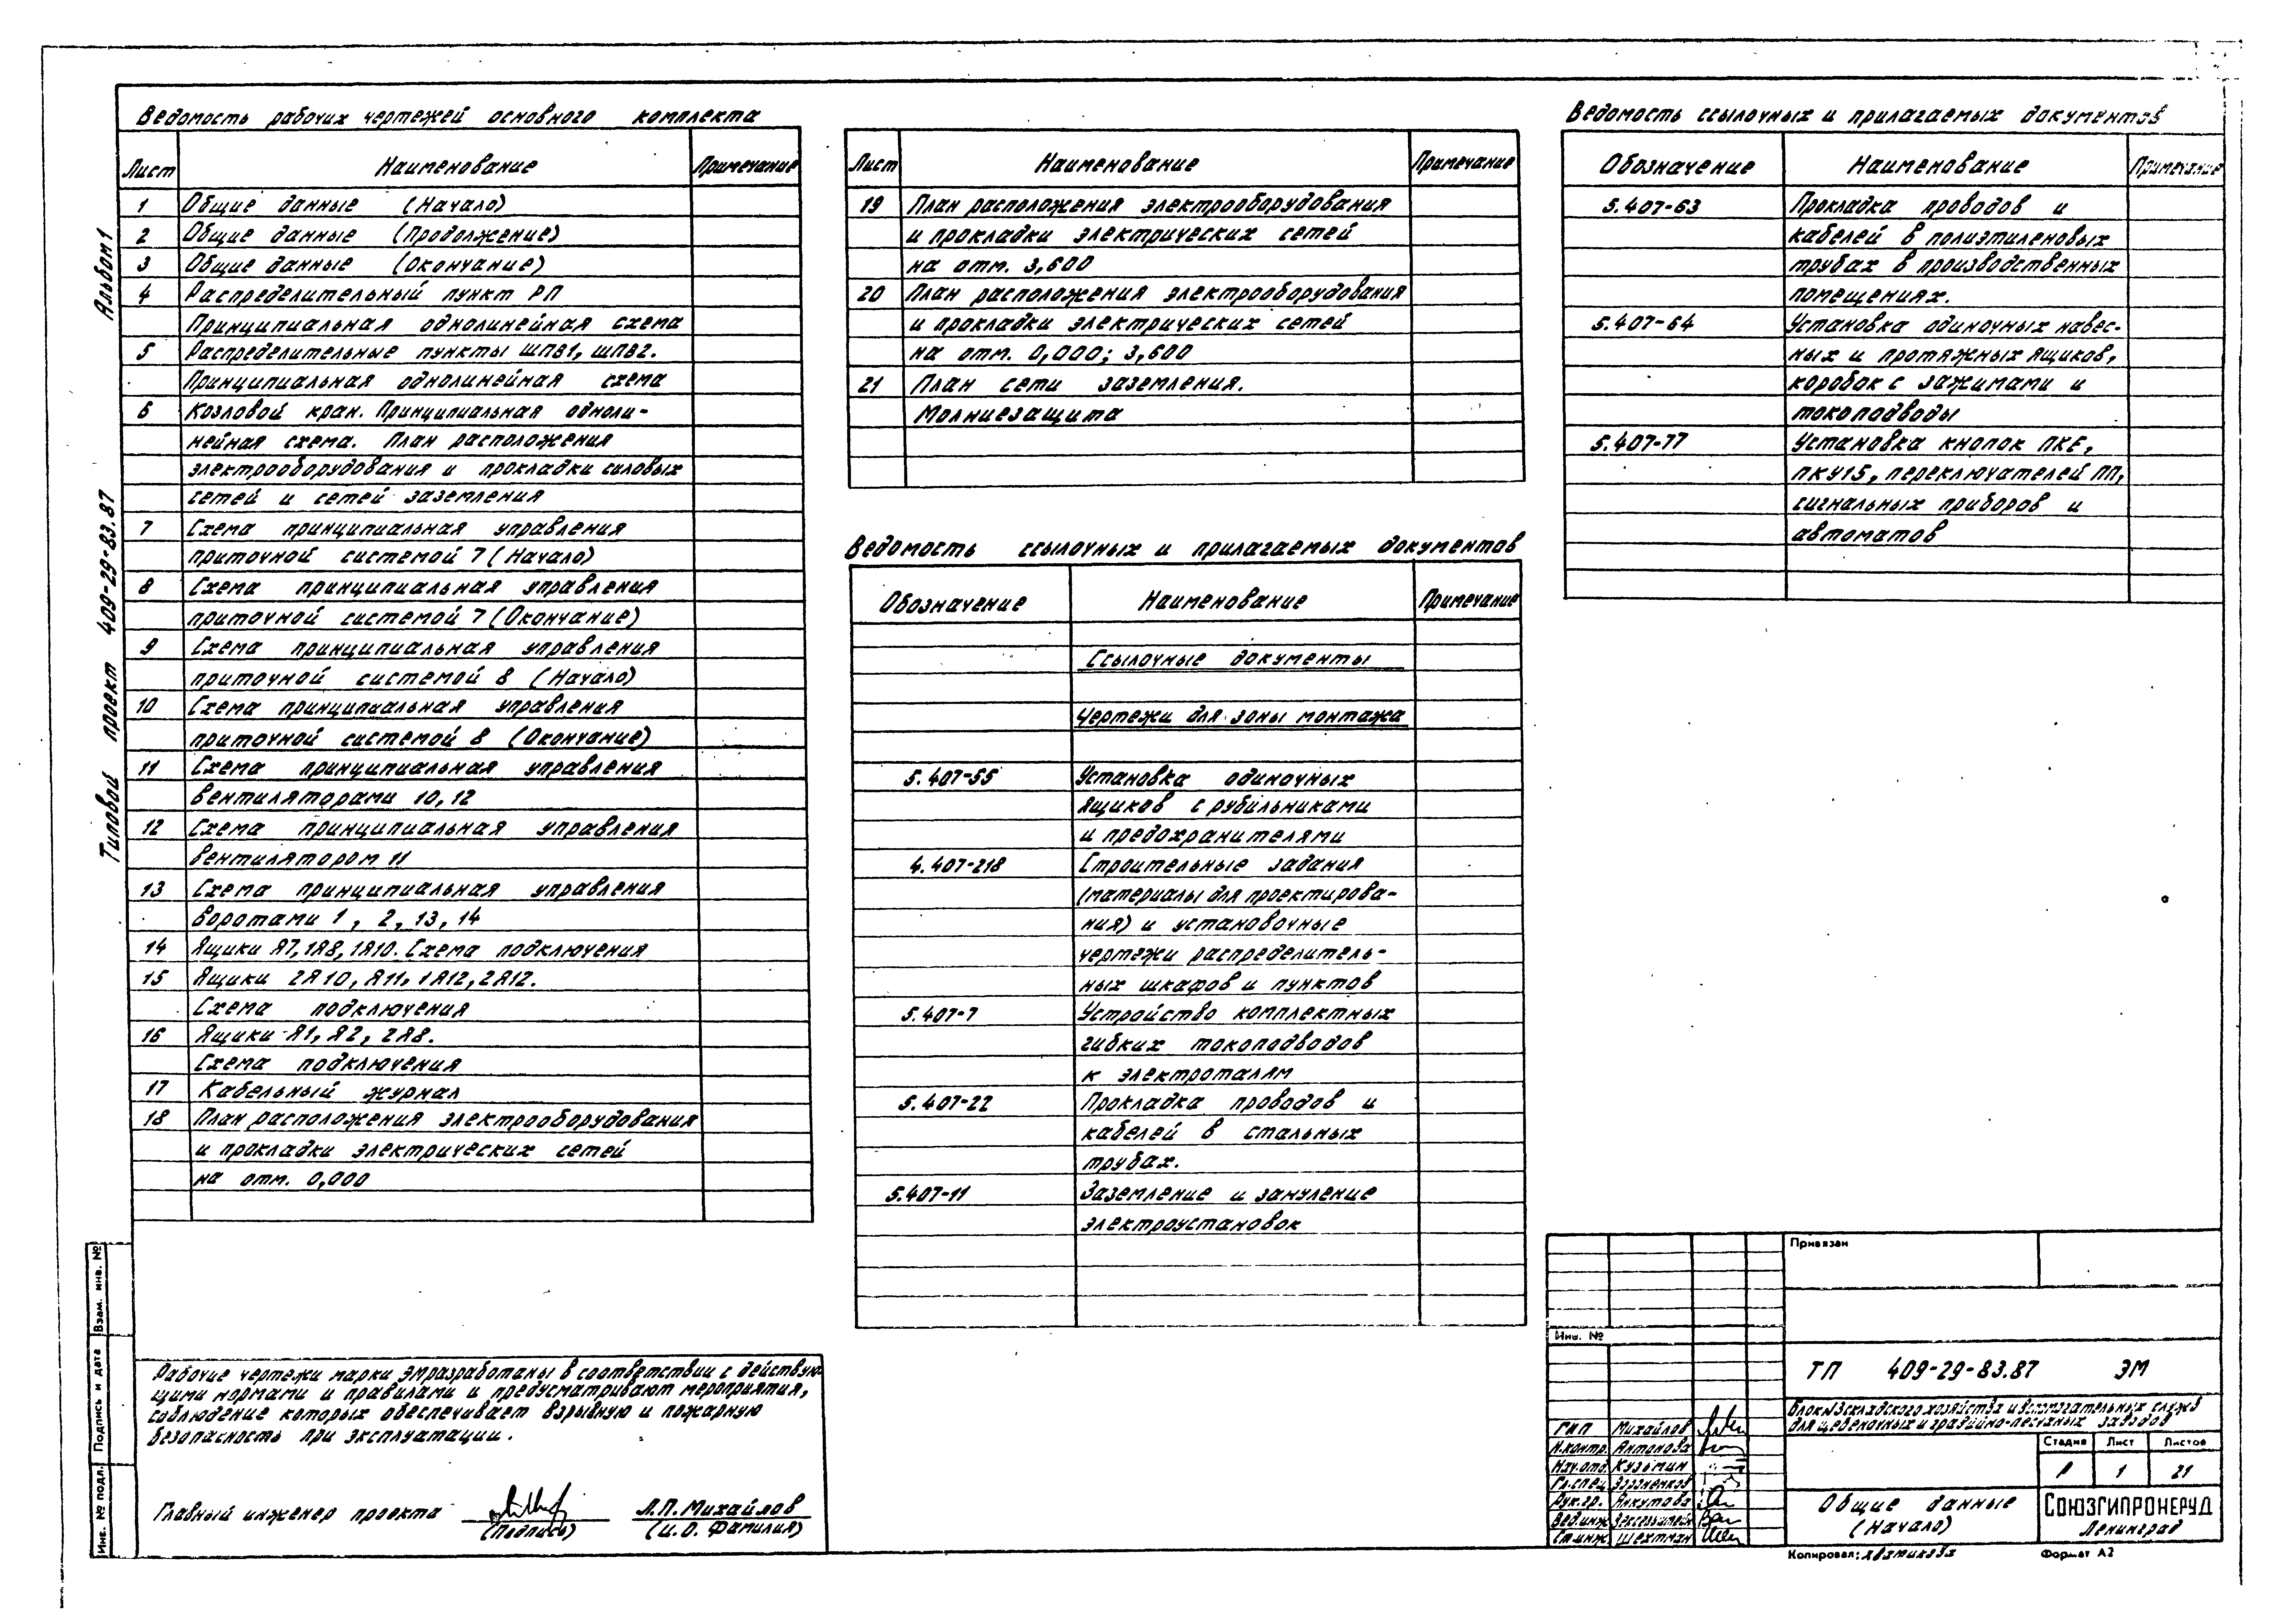 Ведомость рабочих чертежей основного комплекта
Лист Наименование Примечание
1 Общие данные (Начало)
2 Общие данные (Продолжение)
3 Общие данные (Окончание)
4 Распределительный пункт РП
Принципиальная однолинейная схема
5 Распределительные пункты ШПВ1, ШПВ2.
Принципиальная однолинейная схема
6 Козловой кран. Принципиальная одноли-
нейная схема. План расположения
электрооборудования и прокладки силовых
сетей и сетей заземления
7 Схема принципиальная управления
приточной системой 7 (Начало)
8 Схема принципиальная управления
приточной системой 7 (Окончание)
9 Схема принципиальная управления
приточной системой 8 (Начало)
10 Схема принципиальная управления
приточной системой 8 (Окончание)
11 Схема принципиальная управления
вентиляторами 10, 12
12 Схема принципиальная управления
вентилятором 11
13 Схема принципиальная управления
воротами 1, 2, 13, 14
14 Ящики Я7, 1Я8, 1Я10. Схема подключения
15 Ящики 2Я10, Я11, 1Я12, 2Я12.
Схема подключения
16 Ящики Я1, Я2, 2Я8.
Схема подключения
17 Кабельный журнал
18 План расположения электрооборудования
и прокладки электрических сетей
на отм. 0,000
Лист Наименование Примечание
19 План расположения электрооборудования
и прокладки электрических сетей
на отм. 3,600
20 План расположения электрооборудования
и прокладки электрических сетей
на отм. 0,000; 3,600
21 План сети заземления.
Молниезащита
Ведомость ссылочных и прилагаемых документов
Обозначение Наименование Примечание
Ссылочные документы
Чертежи для зоны монтажа
5.407-55 Установка одиночных
ящиков с рубильниками
и предохранителями
4.407-218 Строительные задания
(материалы для проектирова-
ния) и установочные
чертежи распределитель-
ных шкафов и пунктов
5.407-7 Устройство комплектных
гибких токоподводов
к электроталям
5.407-22 Прокладка проводов и
кабелей в стальных
трубах.
5.407-11 Заземление и зануление
электроустановок
Ведомость ссылочных и прилагаемых документов
Обозначение Наименование Примечание
5.407-63 Прокладка проводов и
кабелей в полиэтиленовых
трубах в производственных
помещениях.
5.407-64 Установка одиночных навес-
ных и протяжных ящиков,
коробок с зажимами и
токоподводы
5.407-77 Установка кнопок ПКЕ,
ПКУ15, переключателей ПП,
сигнальных приборов и
автоматов
Альбом 1
Типовой проект 409-29-83.87
Взам. инв. №
Подпись и дата
Инв. № подл.
Рабочие чертежи марки ЭМ разработаны в соответствии с действую-
щими нормами и правилами и предусматривают мероприятия,
соблюдение которых обеспечивает взрывную и пожарную
безопасность при эксплуатации.
Главный инженер проекта Л.П. Михайлов
(Подпись) (И.О. Фамилия)
Привязан
Инв. №
ТП 409-29-83.87 ЭМ
Блок складского хозяйства и вспомогательных служб
для щебеночных и гравийно-песчаных заводов
Стадия Лист Листов
Р 1 21
ГИП Михайлов
Н.контр. Антонова
Нач.отд. Кузьмин
Гл.спец.
Рук.гр. Янкутова
Вед.инж.
Ст.инж. Шехтман
Общие данные
(Начало)
СОЮЗГИПРОНЕРУД
Ленинград
Копировал: Хватикова Формат А2